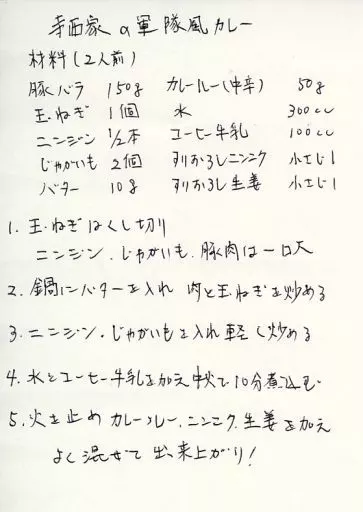 寺西家の軍隊風カレー
材料(2人前)
豚バラ 150g カレールー(中辛) 50g
玉ねぎ 1個 水 300cc
ニンジン 1/2本 コーヒー牛乳 100cc
じゃがいも 2個 すりおろしニンニク 小さじ1
バター 10g すりおろし生姜 小さじ1
1. 玉ねぎはくし切り
ニンジン、じゃがいも、豚肉は一口大
2. 鍋にバターを入れ 肉と玉ねぎを炒める
3. ニンジン、じゃがいもを入れ軽く炒める
4. 水とコーヒー牛乳を加え中火で10分煮込む
5. 火を止め カレールー、ニンニク、生姜を加え
よく混ぜて出来上がり!